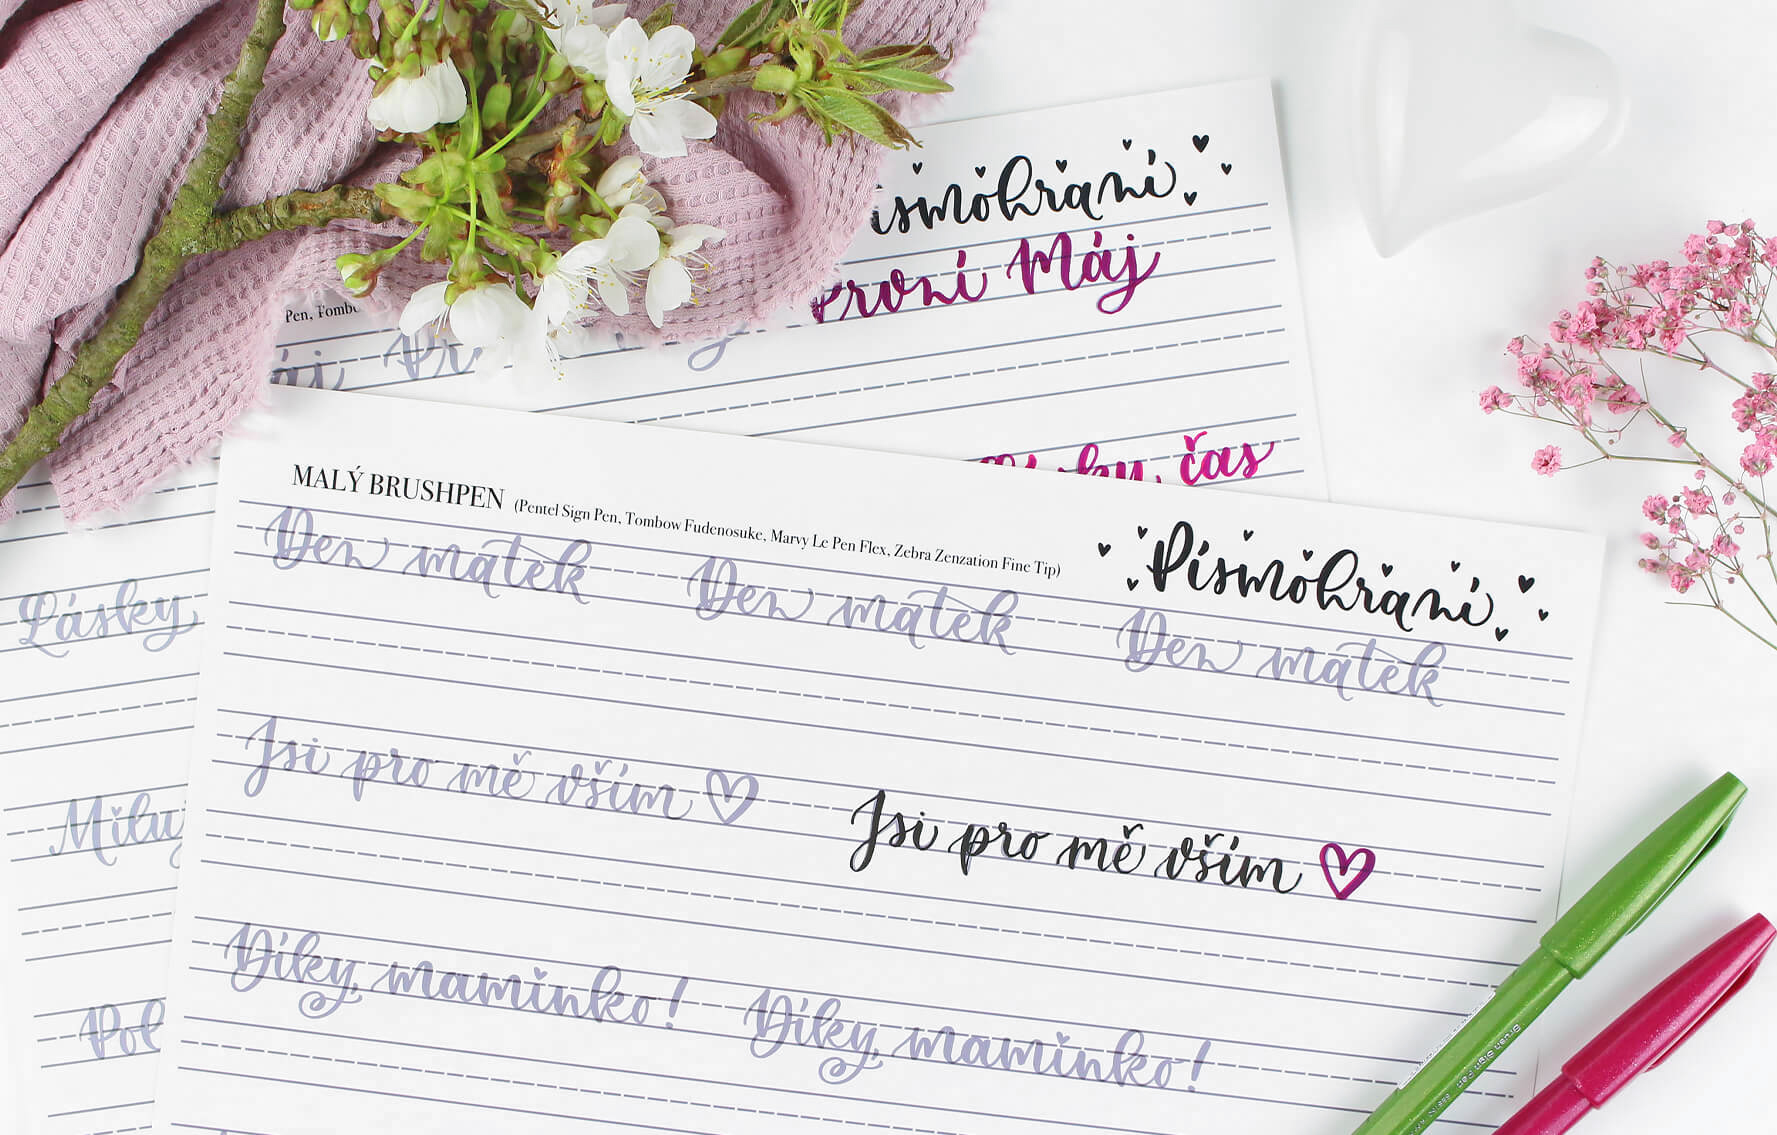 Písmohraní
první Máj
Pen, Tombo
čas
MALÝ BRUSHPEN (Pentel Sign Pen, Tombow Fudenosuke, Marvy Le Pen Flex, Zebra Zenzation Fine Tip)
Písmohraní
Den matek Den matek Den matek
Lásky
Jsi pro mě vším ♡ Jsi pro mě vším ♡
Díky, maminko! Díky, maminko!